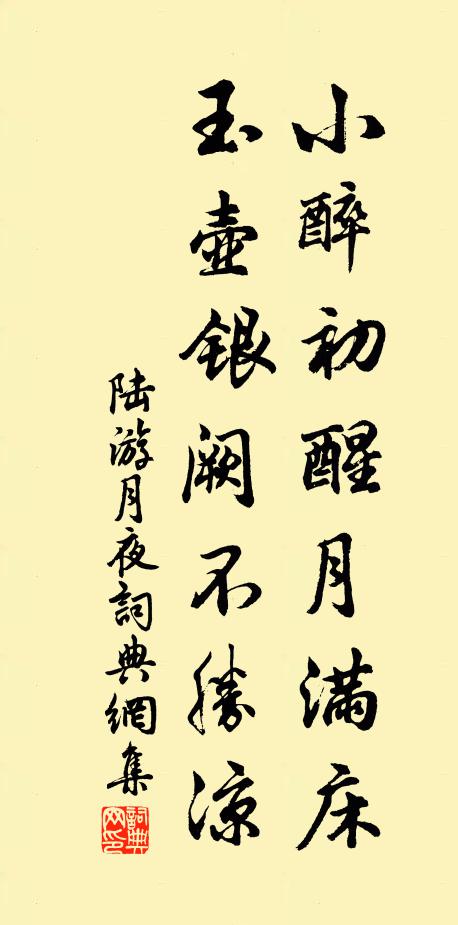 小醉初醒月满床
玉壶银阙不胜凉
陆游月夜词典網集
詞典
网印